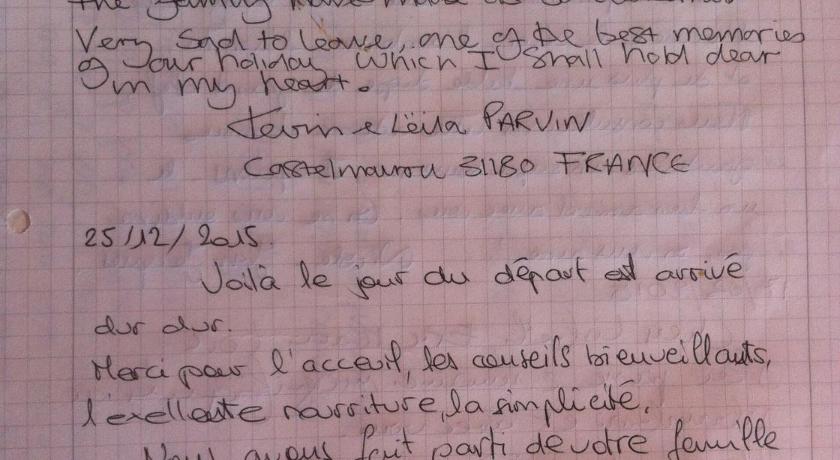 the family have made us so
Very Sad to leave, one of the best memories
of our holiday which I shall hold dear
in my heart.
Kevin & Lëila PARVIN
Castelmaurou 31180 FRANCE
25/12/2015.
Voilà le jour du départ est arrivé
dur dur.
Merci pour l'acceuil, les conseils bienveillants,
l'exellente nourriture, la simplicité.
Nous avons fait parti de votre famille